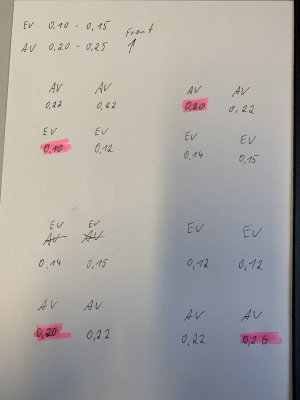 EV 0,10 - 0,15 Front
AV 0,20 - 0,25 ↑
AV AV AV AV
0,22 0,22 0,20 0,22
EV EV EV EV
0,10 0,12 0,14 0,15
EV EV EV EV
AV AV
0,14 0,15 0,12 0,12
AV AV AV AV
0,20 0,22 0,22 0,26